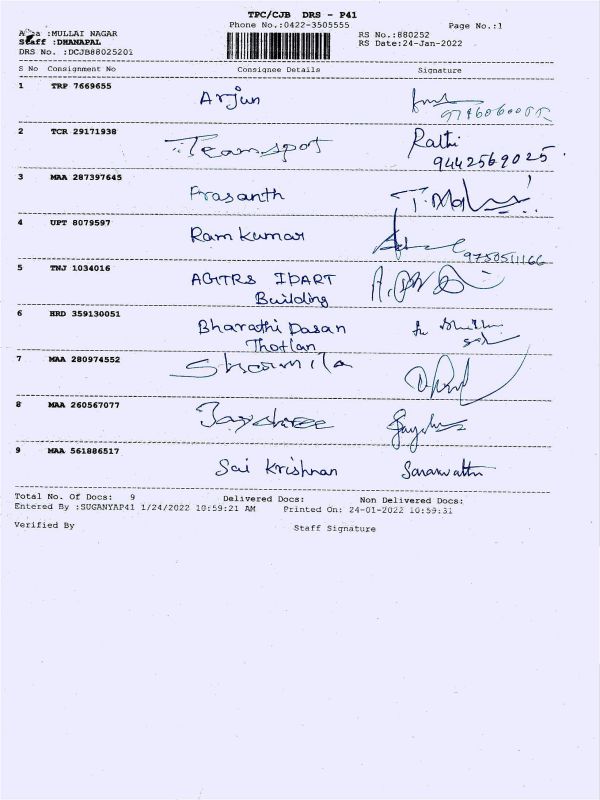 TPC/CJB DRS - P41
Phone No.:0422-3505555
Page No.:1
:MULLAI NAGAR
RS No.:880252
Staff :DHANAPAL
RS Date:24-Jan-2022
DRS No. :DCJB88025201
S No Consignment No Consignee Details Signature
1 TRP 7669655
Arjun
2 TCR 29171938
Teamspot Rathi
9442569025
3 MAA 287397645
Prasanth
4 UPT 8079597
Ram Kumar
9750511166
5 TNJ 1034016
AGTRS IDART
Building
6 HRD 359130051
Bharathi Dasan
Thotlan
7 MAA 280974552
Sharmila
8 MAA 260567077
Jayshree
9 MAA 561886517
Sai Krishnan Saraswathi
Total No. Of Docs: 9 Delivered Docs: Non Delivered Docs:
Entered By :SUGANYAP41 1/24/2022 10:59:21 AM Printed On: 24-01-2022 10:59:31
Verified By Staff Signature